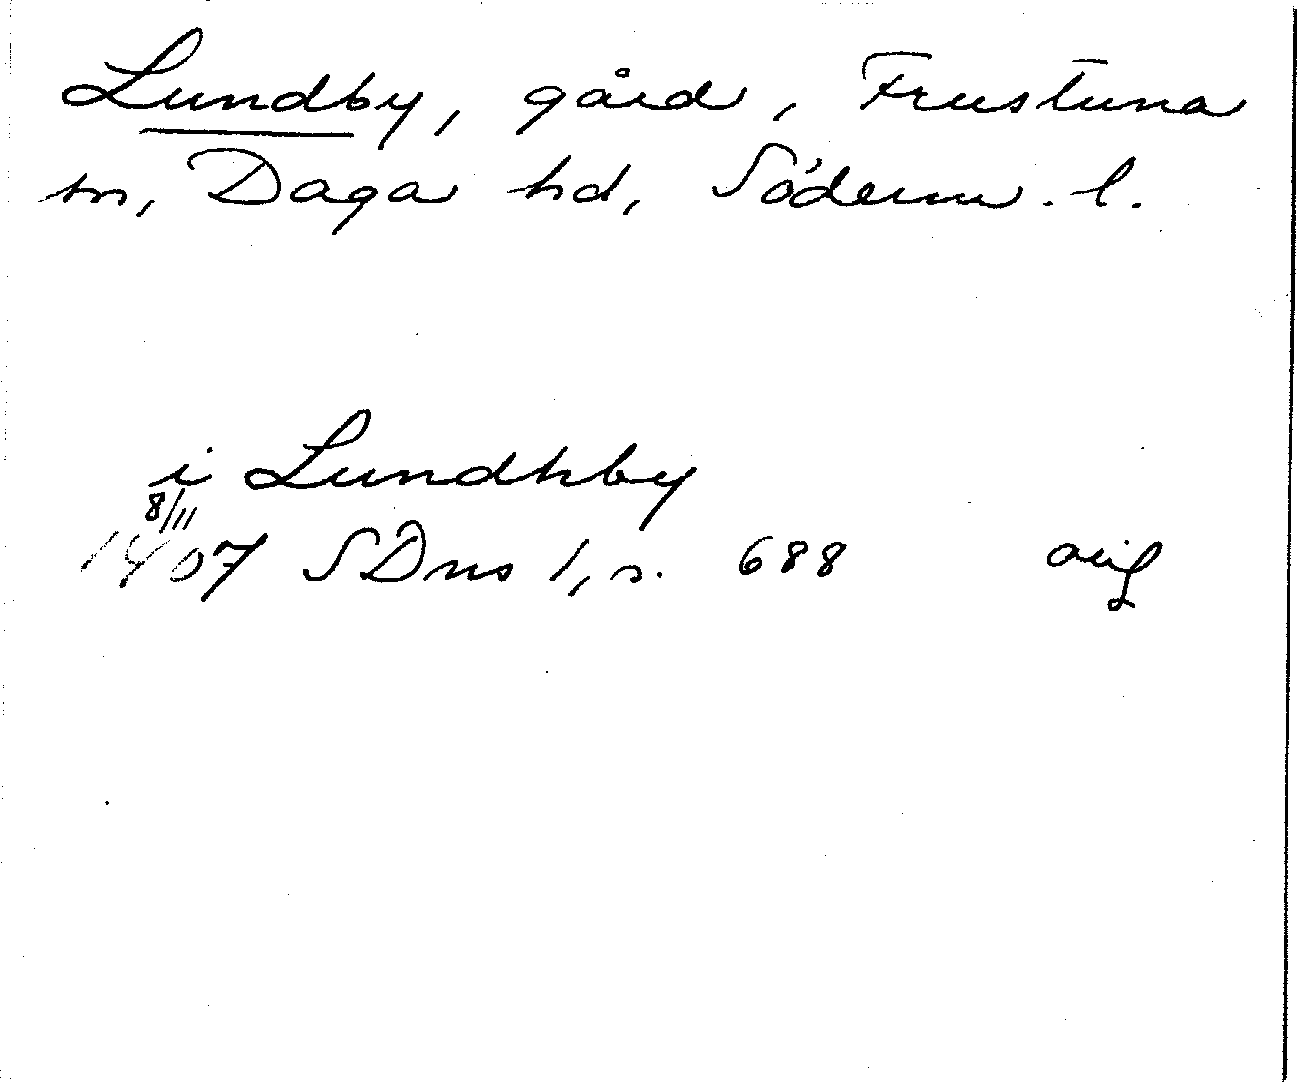 Lundby, gård, Frustuna
sn, Daga hd, Söderm. l.
i Lundhby
8/11
1407 SDns 1, s. 688 orig